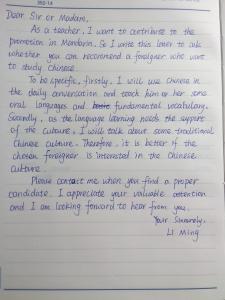 Dear Sir or Madam,
As a teacher, I want to contribute to the
promotion in Mandarin. So I write this letter to ask
whether you can recommend a foreigner who want
to study Chinese.
To be specific, firstly, I will use Chinese in
the daily conversation and teach him or her some
oral languages and fundamental vocabulary.
Secondly, as the language learning needs the support
of the culture, I will talk about some traditional
Chinese culture. Therefore, it is better if the
chosen foreigner is interested in the Chinese
culture.
Please contact me when you find a proper
candidate. I appreciate your valuable attention
and I am looking forward to hear from you.
Your Sincerely,
LI Ming